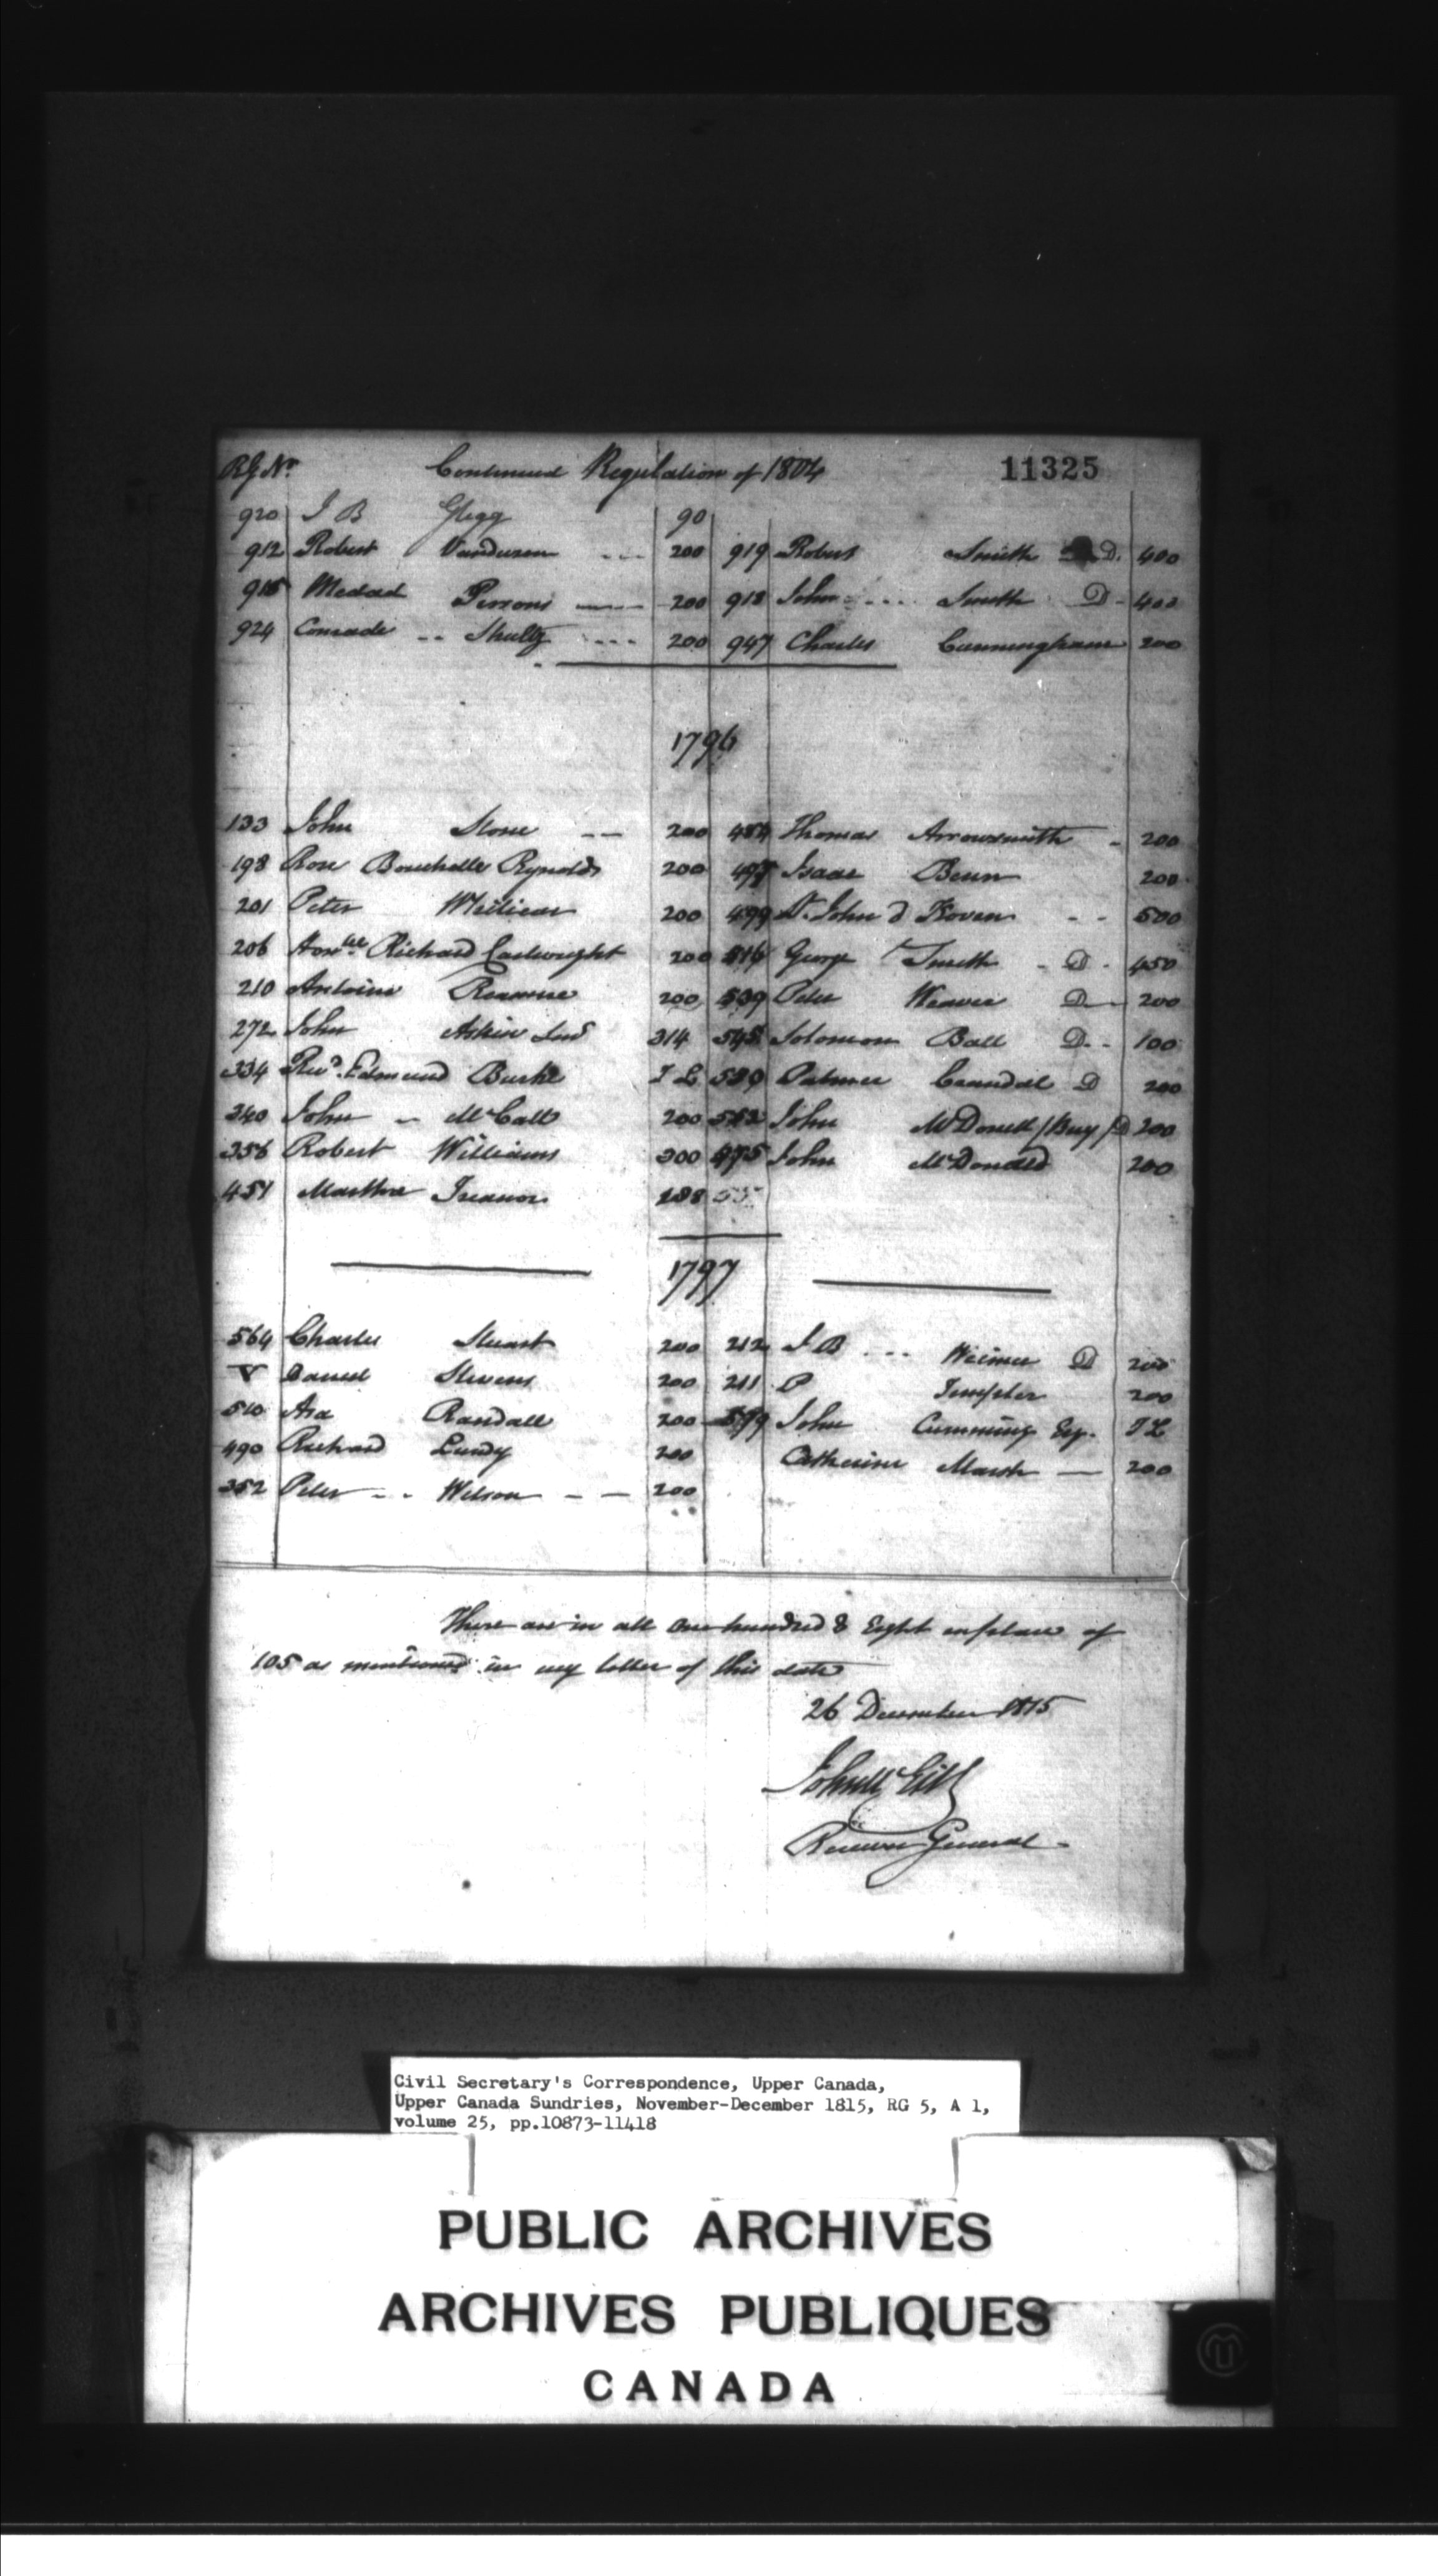 Rg No. Continued Regulation of 1804 11325
920 J B Glegg 90
912 Robert Vanduzen --- 200 919 Robert Smith D. 400
915 Medad Persons --- 200 918 John --- Smith D - 400
924 Conrade -- Shultz ---- 200 947 Charles Cunningham 200
1796
133 John Stone -- 200 484 Thomas Arrowsmith - 200
198 Rose Bouchelle Rynolds 200 497 Isaac Benn 200
201 Peter 200 499 St. John d Roven - - 500
206 Honble Richard Cartwright 200 516 George Smith - D - 450
210 Antoine 200 539 Peter Weaver D - 200
272 John Askin Senr 314 545 Solomon Ball D - - 100
334 Revd. Edmund Burke T L 589 Palmer Crandal D 200
340 John - McCall 200 552 John McDonell /Buy/ D 200
356 Robert Williams 300 475 John McDonald 200
451 Martha Treanor 188
1797
564 Charles Stuart 200 212 J B --- Weimer D 200
V Daniel Stevens 200 211 P Templer 200
510 Asa Randall 200 579 John Cumming Esq. T L
490 Richard Lundy 200 Catherine Marsh — 200
352 Peter - - Wilson - - 200
There are in all One hundred & Eight in place of
105 as mentioned in my letter of this date
26 December 1815
John McGill
Receiver General -
Civil Secretary's Correspondence, Upper Canada,
Upper Canada Sundries, November-December 1815, RG 5, A 1,
volume 25, pp.10873-11418
PUBLIC ARCHIVES
ARCHIVES PUBLIQUES
CANADA